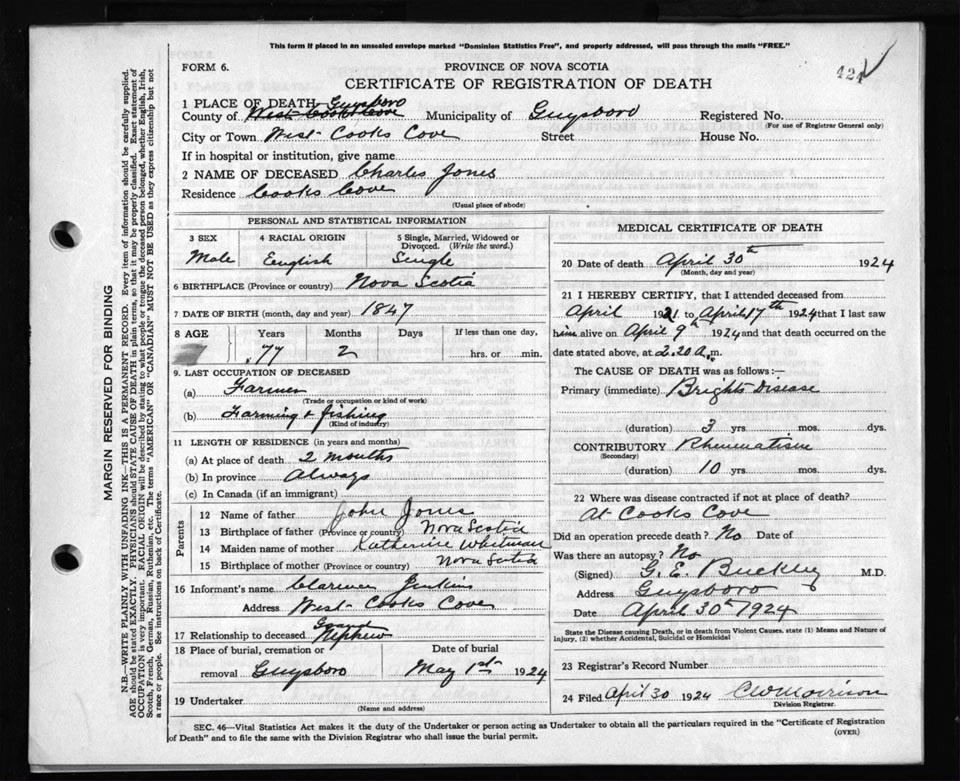 This form if placed in an unsealed envelope marked "Dominion Statistics Free", and properly addressed, will pass through the mails "FREE."
FORM 6.
PROVINCE OF NOVA SCOTIA
421
CERTIFICATE OF REGISTRATION OF DEATH
1 PLACE OF DEATH Guysboro
County of West Cooks Cove Municipality of Guysboro Registered No.
(For use of Registrar General only)
City or Town West Cooks Cove Street House No.
If in hospital or institution, give name
2 NAME OF DECEASED Charles Jones
Residence Cooks Cove
(Usual place of abode)
PERSONAL AND STATISTICAL INFORMATION
3 SEX 4 RACIAL ORIGIN 5 Single, Married, Widowed or Divorced. (Write the word.)
Male English Single
6 BIRTHPLACE (Province or country) Nova Scotia
7 DATE OF BIRTH (month, day and year) 1847
8 AGE Years Months Days If less than one day,
77 2 hrs. or min.
9. LAST OCCUPATION OF DECEASED
(a) Farmer
(Trade or occupation or kind of work)
(b) Farming & fishing
(Kind of industry)
11 LENGTH OF RESIDENCE (in years and months)
(a) At place of death 2 months
(b) In province Always
(c) In Canada (if an immigrant)
Parents
12 Name of father John Jones
13 Birthplace of father (Province or country) Nova Scotia
14 Maiden name of mother Katherine Whitman
15 Birthplace of mother (Province or country) Nova Scotia
16 Informant's name Clarence Jenkins
Address West Cooks Cove
17 Relationship to deceased Grand Nephew
18 Place of burial, cremation or removal Guysboro Date of burial May 1st 1924
19 Undertaker
(Name and address)
MEDICAL CERTIFICATE OF DEATH
20 Date of death April 30th 1924
(Month, day and year)
21 I HEREBY CERTIFY, that I attended deceased from
April 1921 to April 17th 1924 that I last saw
him alive on April 9th 1924 and that death occurred on
date stated above, at 2.20 a.m.
The CAUSE OF DEATH was as follows:—
Primary (immediate) Brights Disease
(duration) 3 yrs. mos. dys.
CONTRIBUTORY Rheumatism
(Secondary)
(duration) 10 yrs. mos. dys.
22 Where was disease contracted if not at place of death?
At Cooks Cove
Did an operation precede death? No Date of
Was there an autopsy? No
(Signed) G. E. Buckley M.D.
Address Guysboro
Date April 30th 1924
State the Disease causing Death, or in death from Violent Causes, state (1) Means and Nature of Injury, (2) whether Accidental, Suicidal or Homicidal
23 Registrar's Record Number
24 Filed April 30 1924 CW Morrison
Division Registrar.
SEC. 46—Vital Statistics Act makes it the duty of the Undertaker or person acting as Undertaker to obtain all the particulars required in the "Certificate of Registration
of Death" and to file the same with the Division Registrar who shall issue the burial permit.
(OVER)
MARGIN RESERVED FOR BINDING
N.B.—WRITE PLAINLY WITH UNFADING INK—THIS IS A PERMANENT RECORD. Every item of information should be carefully supplied.
AGE should be stated EXACTLY. PHYSICIANS should STATE CAUSE OF DEATH in plain terms, so that it may be properly classified. Exact statement of
OCCUPATION is very important. RACIAL ORIGIN will be described by stating to what people or tongue the deceased person belonged, whether English, Irish,
Scotch, French, German, Russian, Ruthenian, etc. The terms "AMERICAN" OR "CANADIAN" MUST NOT BE USED as they express citizenship but not
a race or people. See instructions on back of Certificate.